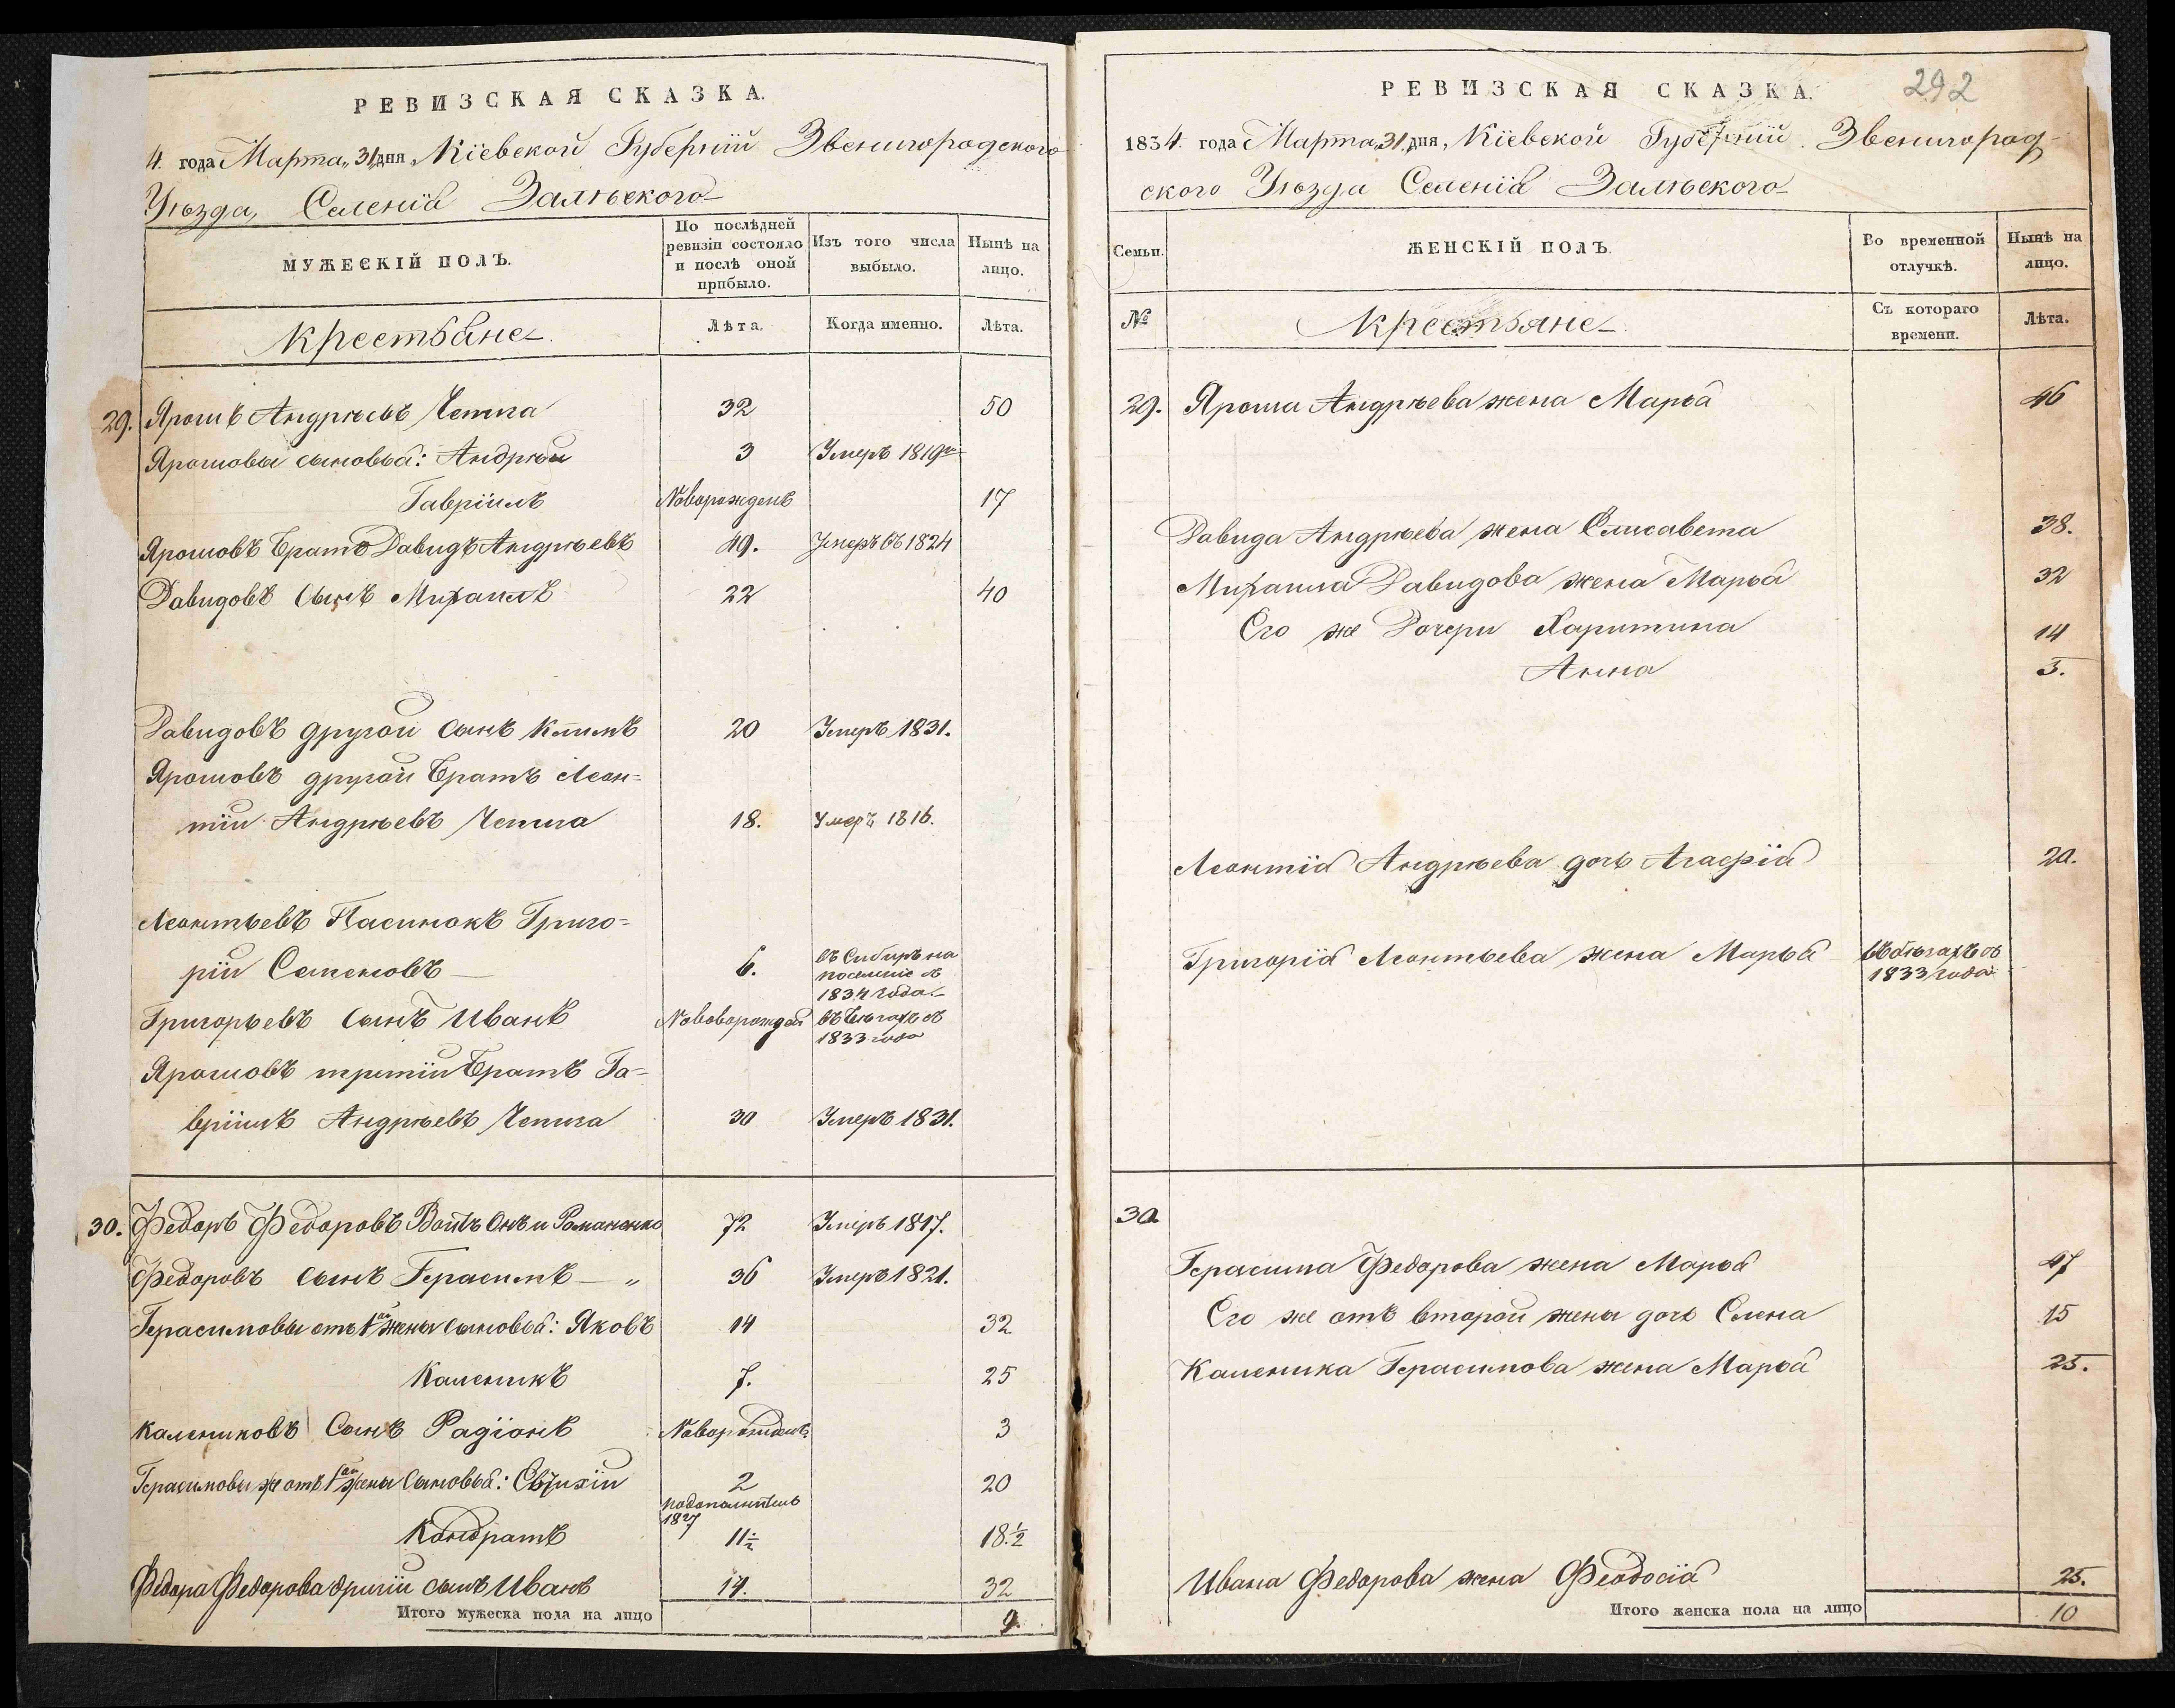 РЕВИЗСКАЯ СКАЗКА.
4. года Марта „31„ дня „ Кіевской Губерніи Звенигородского
Уѣзда, Селенія Залѣского
МУЖЕСКІЙ ПОЛЪ.
По послѣдней ревизіи состояло и послѣ оной прибыло.
Изъ того числа выбыло.
Нынѣ на лицо.
Крестьяне
Лѣта.
Когда именно.
Лѣта.
29. Ярошъ Андрѣевъ Чепига 32 50
Ярошовы сыновья: Андрѣй 3 Умеръ 1819го
Гавріилъ Новорожденъ 17
Ярошовъ Братъ Давидъ Андрѣевъ 49. Умеръ въ 1824
Давидовъ Сынъ Михаилъ 22 40
Давидовъ другой Сынъ Климъ 20 Умеръ 1831.
Ярошовъ другой Братъ Леон=
тіи Андрѣевъ Чепига 18. Умеръ 1816.
Леонтьевъ Пасинокъ Григо=
рій Семеновъ 6. въ Сибирь на
поселеніе съ
1834 года
Григорьевъ Сынъ Иванъ въ Бѣгахъ съ
1833 года
Ярошовъ третіи Братъ Га=
вріилъ Андрѣевъ Чепига 30 Умеръ 1831.
30. Федоръ Федоровъ Онъ и Романенко 72 Умеръ 1817.
Федоровъ Сынъ Герасимъ — „ 36 Умеръ 1821.
Герасимовы отъ 1ай жены Сыновья: Яковъ 14 32
Каленикъ 7. 25
Калениковъ Сынъ Радіонъ Новорожденъ. 3
Герасимовы же отъ 1ай жены Сыновья: Евтихіи 2 20
1827
Кондратъ 11½ 18.½
Федора Федорова другіи сынъ Иванъ 14. 32
Итого мужеска пола на лицо 9.
292
РЕВИЗСКАЯ СКАЗКА.
1834. года Марта „31„ дня, Кіевской Губерніи Звенигород-
ского Уѣзда Селенія Залѣского
Семьи.
ЖЕНСКІЙ ПОЛЪ.
Во временной отлучкѣ.
Нынѣ на лицо.
№
Крестьяне
Съ котораго времени.
Лѣта.
29. Яроша Андрѣева жена Марья 46
Давида Андрѣева жена Елисавета 38.
Михаила Давидова жена Марья 32
Его же Дочери Харитина 14
Анна 3.
Леонтія Андрѣева дочь Агафія 20.
Григорія Леонтьева жена Марья въ бѣгахъ съ
1833 года
30
Герасима Федорова жена Марья 47
Его же отъ второй жены дочь Елена 15
Каленика Герасимова жена Марья 25.
Ивана Федорова жена Феодосія 25.
Итого женска пола на лицо 10